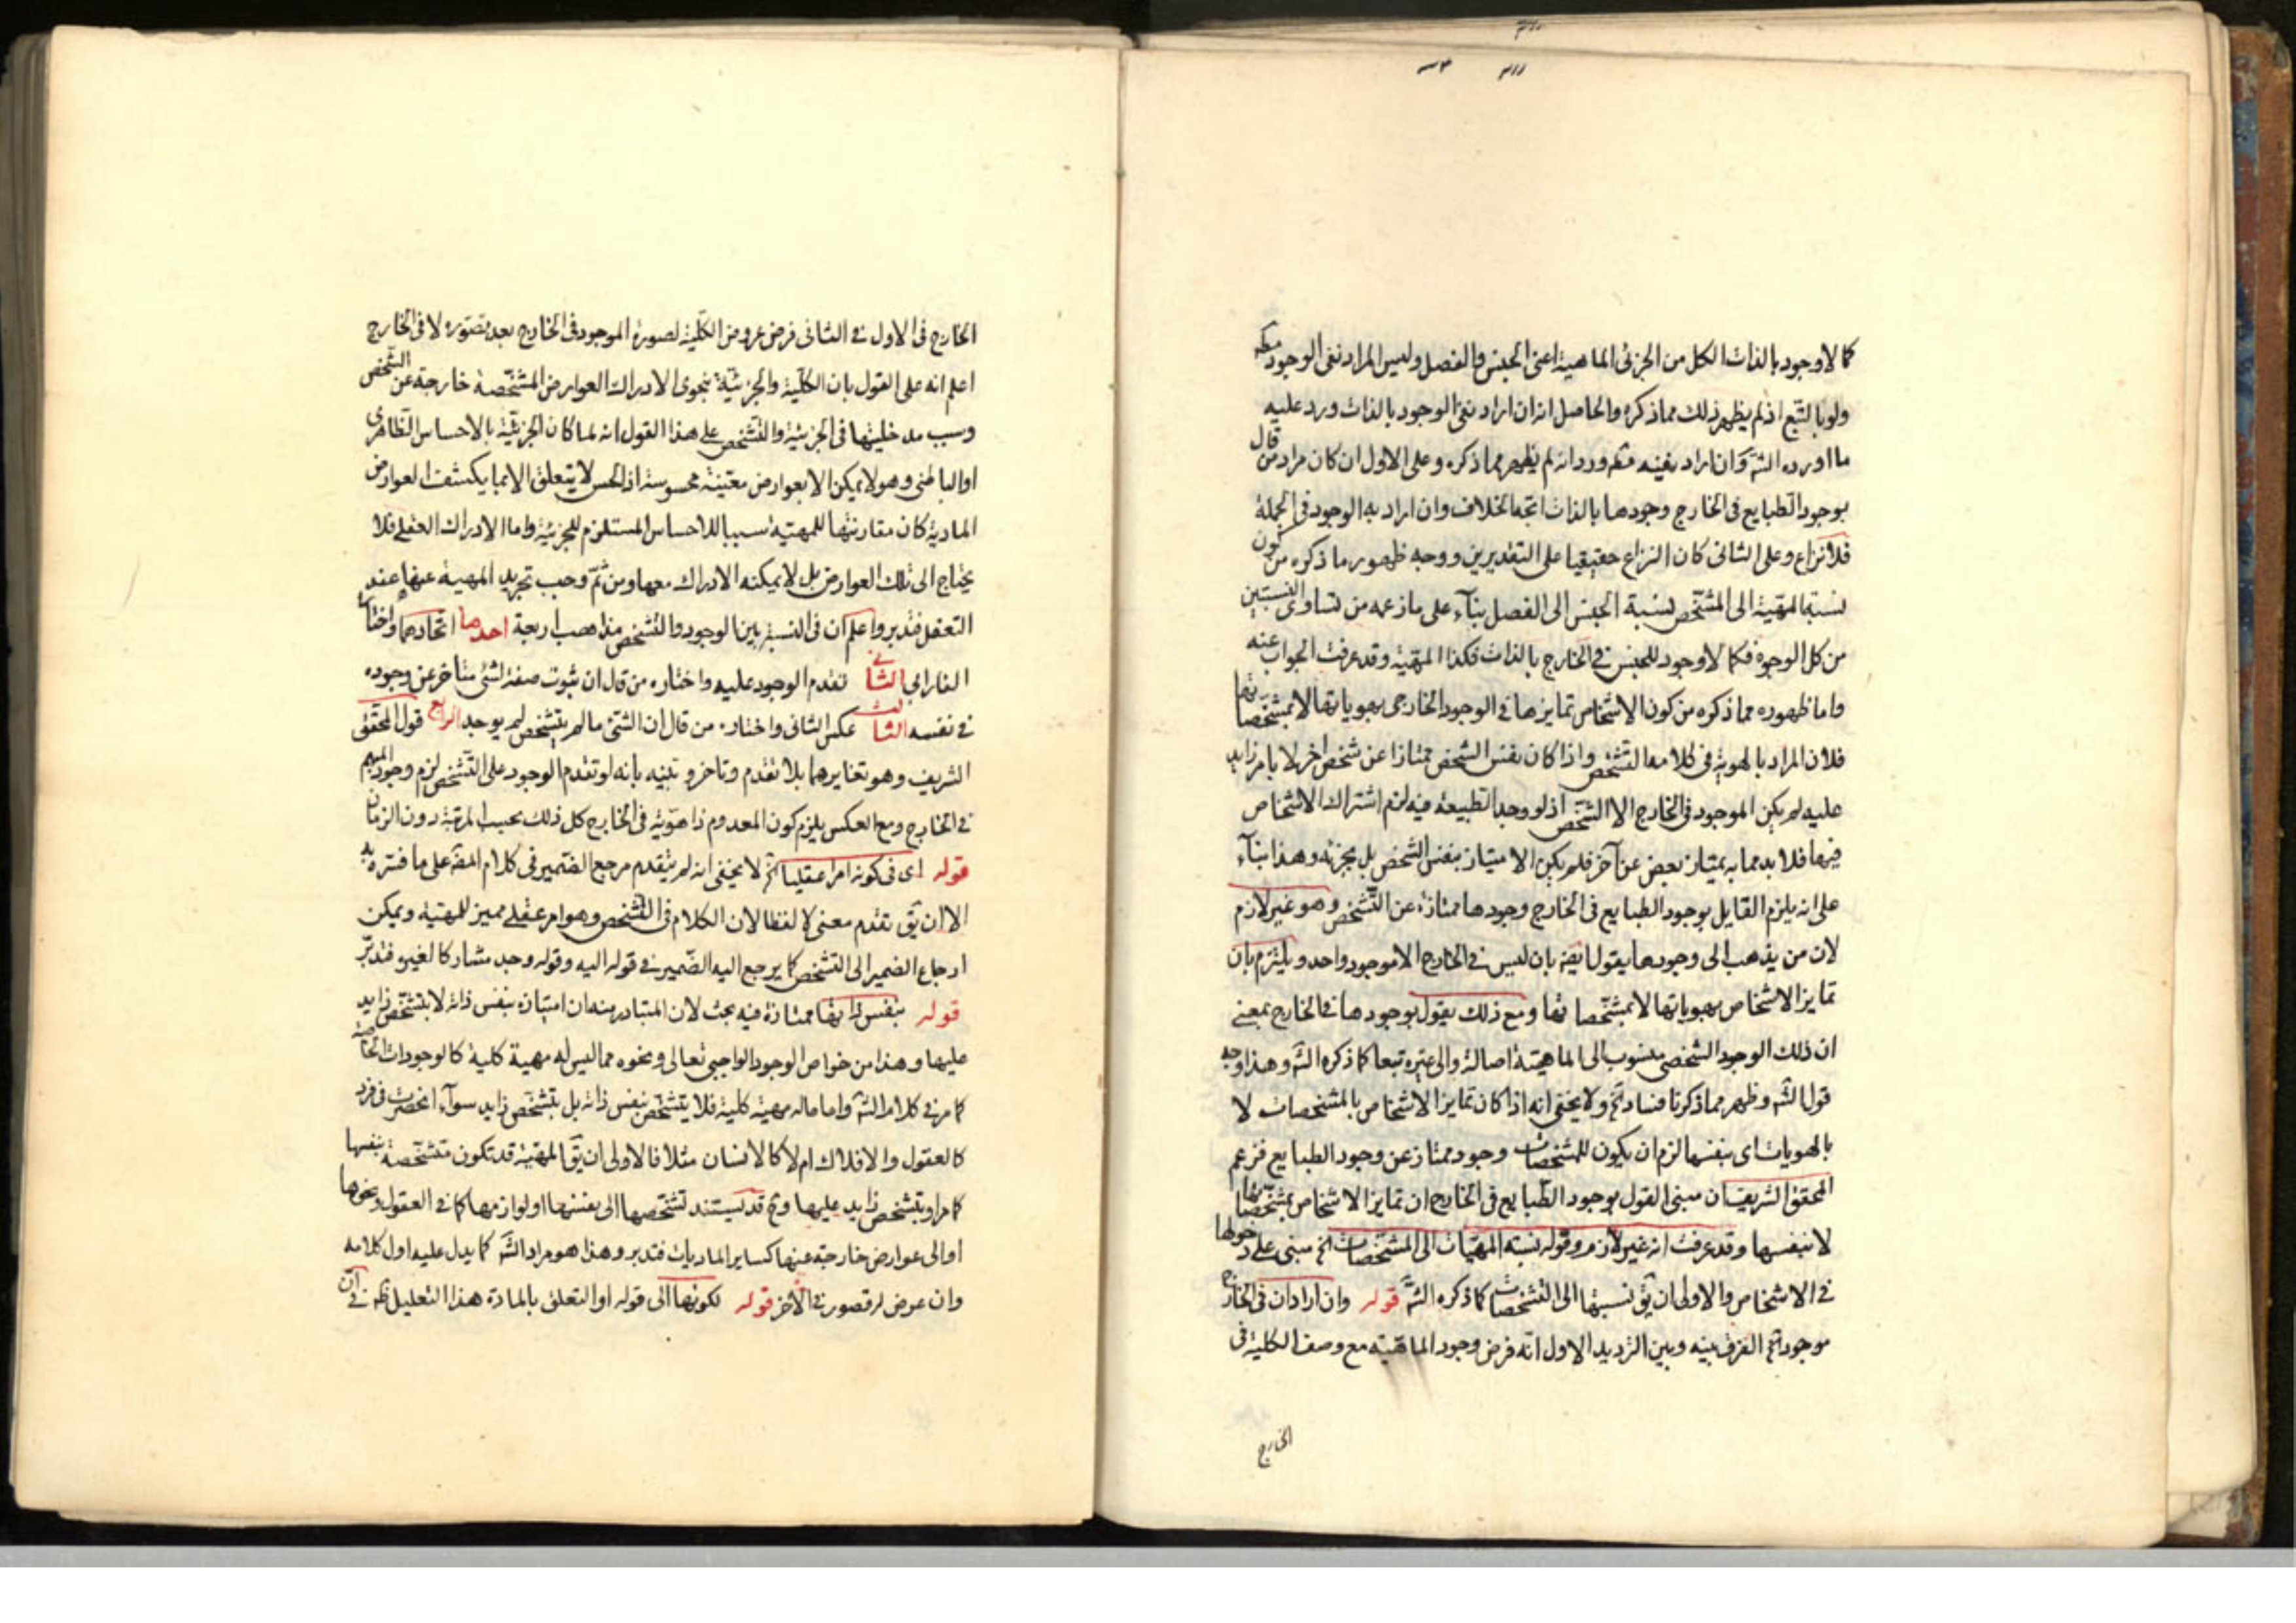 كما لا وجود بالذات الكل من الجزئى الماهية اعنى الجنس والفصل وليس المراد نفى الوجود مطلقه
ولو بالتبع اذ لم يظهر ذلك مما ذكره والحاصل انه ان اراد نفى الوجود بالذات ورد عليه
ما اورده الشه وان اراد نفيه مطه ورد انه لم يظهر مما ذكره وعلى الاول ان كان مراد من قال
بوجود الطبايع فى الخارج وجودها بالذات اتجه الخلاف وان اراد به الوجود فى الجملة
فلا نزاع وعلى الثانى كان النزاع حقيقيا على التقديرين ووجه ظهور ما ذكره من كون
نسبة المهية الى المشخص نسبة الجنس الى الفصل بنآء على ما زعمه من تساوى النسبتين
من كل الوجوه فكما لا وجود للجنس فى الخارج بالذات فكذا المهية وقد عرفت الجواب عنه
واما ظهوره مما ذكره من كون الاشخاص تمايزها فى الوجود الخارجى بهوياتها لا بمشخصاتها
فلان المراد بالهوية فى كلامه التشخص واذا كان نفس الشخص ممتازا عن شخص اخر لا بامر زايد
عليه لم يكن الموجود فى الخارج الا الشخص اذ لو وجد الطبيعة فيه لزم اشتراك الاشخاص
فيها فلا بد مما به يمتاز بعض عن آخر فلم يكن الامتياز بنفس الشخص بل بجزئه وهذا بنآء
على انه يلزم القايل بوجود الطبايع فى الخارج وجودها ممتازة عن التشخص وهو غير لازم
لان من يذهب الى وجودها يقول ايضه بان ليس فى الخارج الا موجود واحد ويلتزم بان
تمايز الاشخاص بهوياتها لا بمشخصاتها ومع ذلك يقول بوجودها فى الخارج بمعنى
ان ذلك الوجود الشخصى منسوب الى الماهية اصالة والى غيره تبعا كما ذكره الشه وهذا وجه
قول الشه وظهر مما ذكرنا فساد الخ ولا يخفى انه اذا كان تمايز الاشخاص بالمشخصات لا
بالهويات اى بنفسها لزم ان يكون للمشخصات وجود ممتاز عن وجود الطبايع فزعم
المحقق الشريف ان مبنى القول بوجود الطبايع فى الخارج ان تمايز الاشخاص بمشخصاتها
لا بنفسها وقد عرفت انه غير لازم وقوله نسبة المهيات الى المشخصات الخ مبنى على دخولها
فى الاشخاص والاولى ان يق نسبتها الى التشخصات كما ذكره الشه قوله وان اراد ان فى الخارج
موجود الخ الفرق بينه وبين الترديد الاول انه فرض وجود الماهية مع وصف الكلية فى
الخارج
الخارج فى الاول فى الثانى فرض عروض الكلية لصورة الموجود فى الخارج بعد تصوره لا فى الخارج
اعلم انه على القول بان الكلية والجزئية بنحوى الادراك العوارض المشخصة خارجة عن الشخص
وسبب مدخليتها فى الجزئية والتشخص على هذا القول انه لما كان الجزئية بالاحساس الظاهرى
او الباطنى وهو لا يمكن الا بعوارض معينة محسوسة اذ الحس لا يتعلق الا بما يكتنف العوارض
المادية كان مقارنتها للمهية سببا للاحساس المستلزم للجزئية واما الادراك العقلى فلا
يحتاج الى تلك العوارض بل لا يمكنه الادراك معها ومن ثم وجب تجريد المهية عنها عند
التعقل فتدبر واعلم ان فى النسبة بين الوجود والتشخص مذاهب اربعة احدها اتحادهما واختاره
الفارابى الثانى تقدم الوجود عليه واختاره من قال ان ثبوت صفة الشئ متاخر عن وجوده
فى نفسه الثالث عكس الثانى واختاره من قال ان الشئ ما لم يتشخص لم يوجد الرابع قول المحقق
الشريف وهو تغايرهما بلا تقدم وتاخر وتبنيه بانه لو تقدم الوجود على التشخص لزم وجود المبهم
فى الخارج ومع العكس يلزم كون المعدوم ذا هوية فى الخارج كل ذلك بحسب المرتبة دون الزمان
قوله اى فى كونه امرا عقليا الخ لا يخفى انه لم يتقدم مرجع الضمير فى كلام المصه على ما فسره به
الا ان يق تقدم معنى لا لفظا لان الكلام فى التشخص وهو امر عقلى مميز للمهية ويمكن
ارجاع الضمير الى التشخص كما يرجع اليه الضمير فى قوله اليه وقوله وجد مشاركا لغيره فتدبر
قوله بنفس ذاتها ممتازة فيه بحث لان المتبادر منه ان امتيازه بنفس ذاته لا بتشخص زايد
عليها وهذا من خواص الوجود الواجبى تعالى ونحوه مما ليس له مهية كلية كالوجودات الخاصة
كما مر فى كلام الشه واما ما له مهية كلية فلا يتشخص بنفس ذاته بل بتشخص زايد سوآء انحصرت فى فرد
كالعقول والافلاك ام لا كالانسان مثلا فالاولى ان يق المهية قد تكون متشخصة بنفسها
كما مر او بتشخص زايد عليها وح قد يستند تشخصها الى نفسها او لوازمها كما فى العقول ونحوها
او الى عوارض خارجة عنها كساير الماديات فتدبر وهذا هو مراد الشه كما يدل عليه اول كلامه
وان عرض له قصور فى الاخر قوله لكونها الى قوله او التعلق بالمادة هذا التعليل ظه فى ان